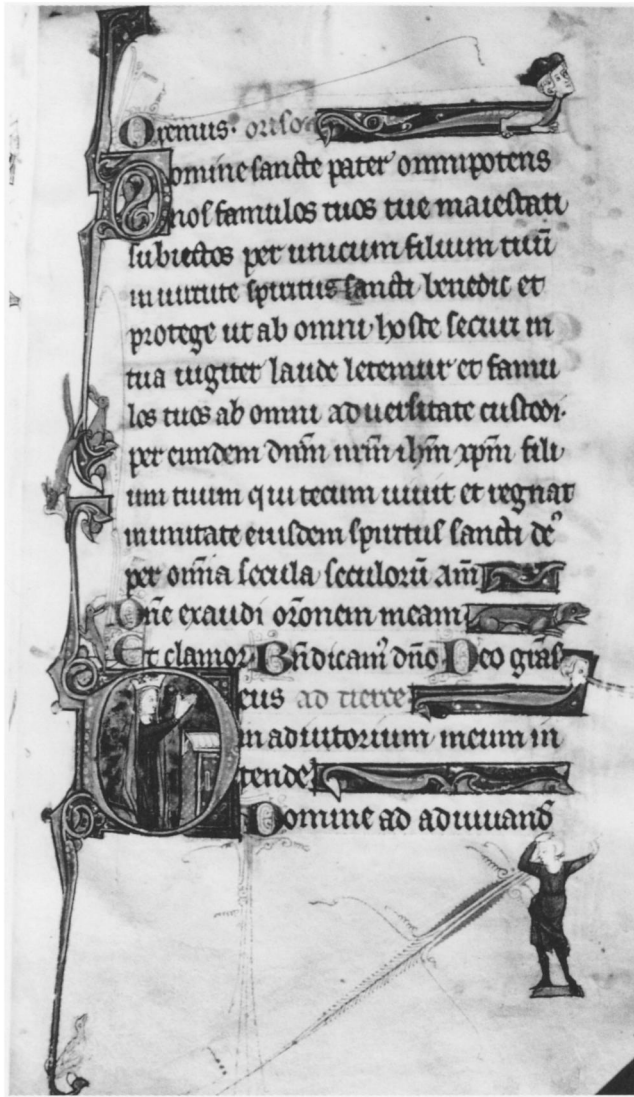 Oremus. oriso
Domine sancte pater omnipotens
nos famulos tuos tue maiestati
subiectos per unicum filium tuū
in uirtute spiritus sancti benedic et
protege ut ab omni hoste securi in
tua iugiter laude letemur et famu
los tuos ab omni aduersitate custodi.
per eundem dn̄m nr̄m ih̄m xp̄m fili
um tuum qui tecum uiuit et regnat
in unitate eiusdem spiritus sancti de⁹
per om̄ia secula seculorū am̄
Dn̄e exaudi or̄onem meam
Et clamor. Bn̄dicam⁹ dn̄o Deo gr̄as
Deus ad tierce
in adiutorium meum in
tende
Domine ad adiuuand̄